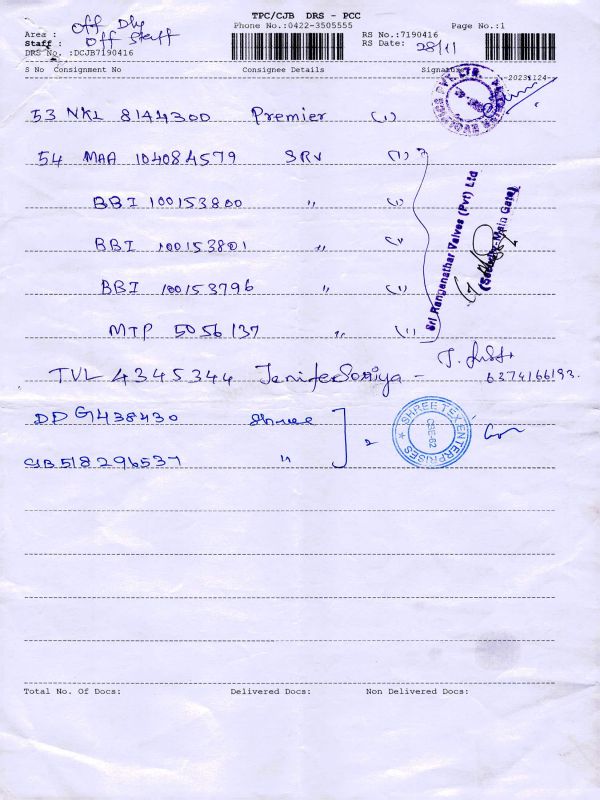 TPC/CJB DRS - PCC
Phone No.:0422-3505555
Page No.:1
Area : Off Dly
RS No.:7190416
Staff : Off Staff
RS Date: 28/11
DRS No. :DCJB7190416
S No Consignment No Consignee Details Signature
-20231124-
53 NKL 8144300 Premier (1)
54 MAA 104084579 SRV (1)
BBI 100153800 " (1)
BBI 100153801 "
BBI 100153796 " (1)
MTP 5056137 " (1)
Sri Ranganathar Valves (Pvt) Ltd
(Security-Main Gate)
TVL 4345344 Jenifer Soniya -
6374166193.
DDG1438430 Shree
CJB518296537 " 2
SHREE TEX ENTERPRISES
CBE-62
Total No. Of Docs: Delivered Docs: Non Delivered Docs: